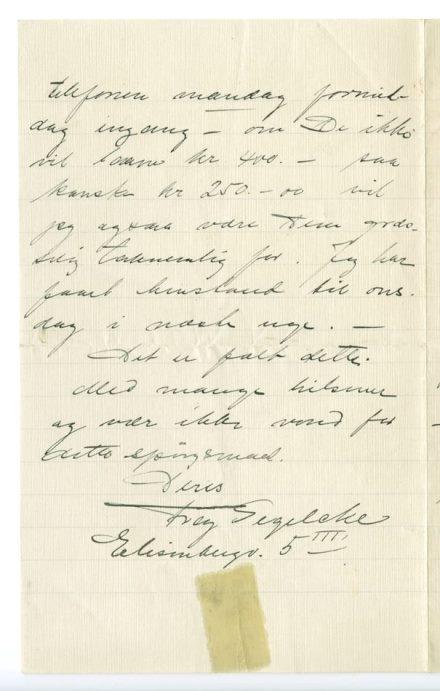 telefonen mandag formid-
dag engang – om De ikke
vil laane kr 400. – saa
kanske kr 250. – oo vil
jeg ogsaa være Dem grœs-
selig taknemlig for. Jeg har
faaet henstand til ons-
dag i næste uge. –
Det er fælt dette.
Med mange hilsener
og vær ikke vond for
dette spörgsmaal.
Deres
Tegelcke
Eilisenbergv. 5 III